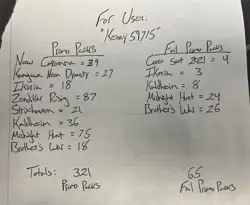 For User:
"Kenny59715"
Promo Packs
New Capenna = 39
Kamigawa Neon Dynasty = 27
Ikoria = 18
Zendikar Rising = 87
Strixhaven = 21
Kaldheim = 36
Midnight Hunt = 75
Brother's War = 18
Totals: 321
Promo Packs
Foil Promo Packs
Core Set 2021 = 4
Ikoria = 3
Kaldheim = 8
Midnight Hunt = 24
Brother's War = 26
65
Foil Promo Packs